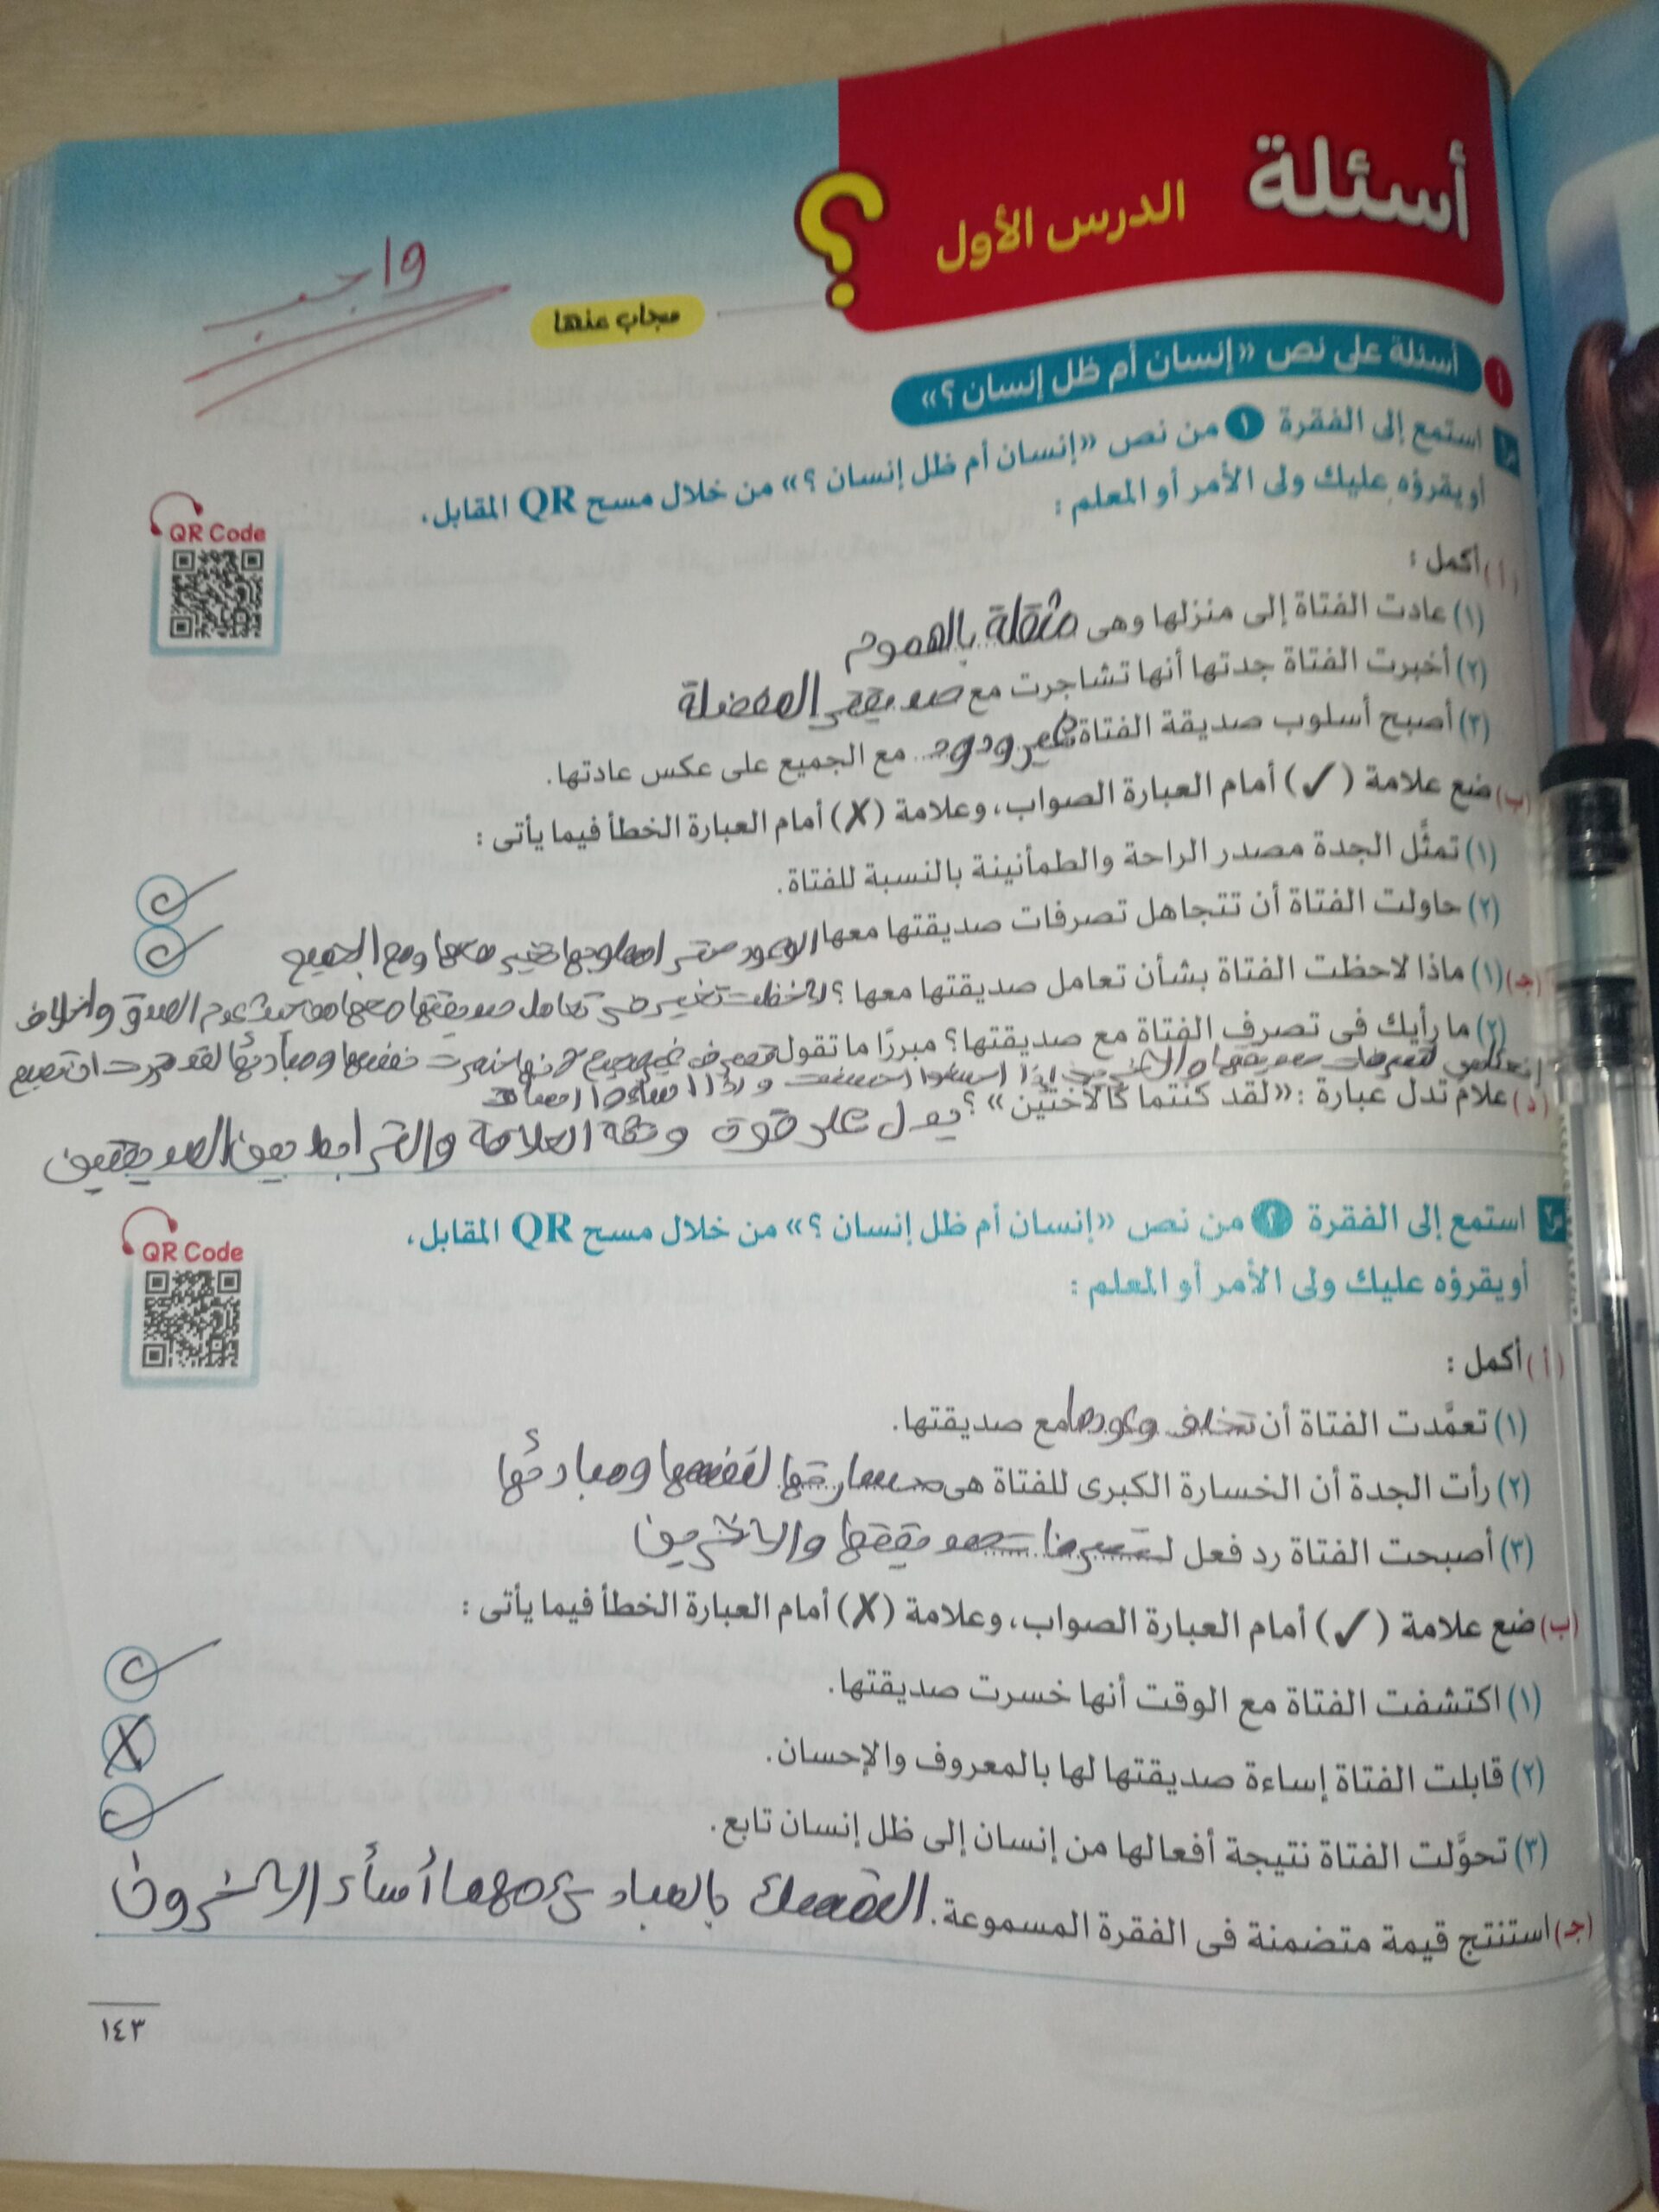 أسئلة الدرس الأول ؟
واجب
مجاب عنها
أ أسئلة على نص «إنسان أم ظل إنسان ؟»
س١ استمع إلى الفقرة ١ من نص «إنسان أم ظل إنسان ؟» من خلال مسح QR المقابل،
أو يقرؤه عليك ولى الأمر أو المعلم :
QR Code
(أ) أكمل :
(١) عادت الفتاة إلى منزلها وهى مثقلة بالهموم
(٢) أخبرت الفتاة جدتها أنها تشاجرت مع صديقتى المفضلة
(٣) أصبح أسلوب صديقة الفتاة غير ودود مع الجميع على عكس عادتها.
(ب) ضع علامة (✓) أمام العبارة الصواب، وعلامة (✗) أمام العبارة الخطأ فيما يأتى :
(١) تمثَّل الجدة مصدر الراحة والطمأنينة بالنسبة للفتاة. ✓
(٢) حاولت الفتاة أن تتجاهل تصرفات صديقتها معها ✓
الوعود حتى اسلوبها تغير معها ومع الجميع
(جـ) (١) ماذا لاحظت الفتاة بشأن تعامل صديقتها معها ؟ لاحظت تغير فى تعامل صديقتها معها من حيث عدم الصدق واخلاف
(٢) ما رأيك فى تصرف الفتاة مع صديقتها؟ مبررًا ما تقول تصرف غير صحيح لانها خسرت نفسها ومبادئها لقد قررت ان تصبح
انعكاس لتصرفات صديقتها والاخرين اذا احسنوا احسنت واذا اساءوا اساءت
(د) علام تدل عبارة : «لقد كنتما كالأختين» ؟ يدل على قوة العلاقة والترابط بين الصديقتين
س٢ استمع إلى الفقرة ٢ من نص «إنسان أم ظل إنسان ؟» من خلال مسح QR المقابل،
أو يقرؤه عليك ولى الأمر أو المعلم :
QR Code
(أ) أكمل :
(١) تعمَّدت الفتاة أن تخلف وعودها مع صديقتها.
(٢) رأت الجدة أن الخسارة الكبرى للفتاة هى خسارتها لنفسها ومبادئها
(٣) أصبحت الفتاة رد فعل لتصرفات صديقتها والاخرين
(ب) ضع علامة (✓) أمام العبارة الصواب، وعلامة (✗) أمام العبارة الخطأ فيما يأتى :
(١) اكتشفت الفتاة مع الوقت أنها خسرت صديقتها. ✓
(٢) قابلت الفتاة إساءة صديقتها لها بالمعروف والإحسان. ✗
(٣) تحوَّلت الفتاة نتيجة أفعالها من إنسان إلى ظل إنسان تابع. ✓
(جـ) استنتج قيمة متضمنة فى الفقرة المسموعة. التمسك بالمبادئ مهما أساء الاخرون
١٤٣